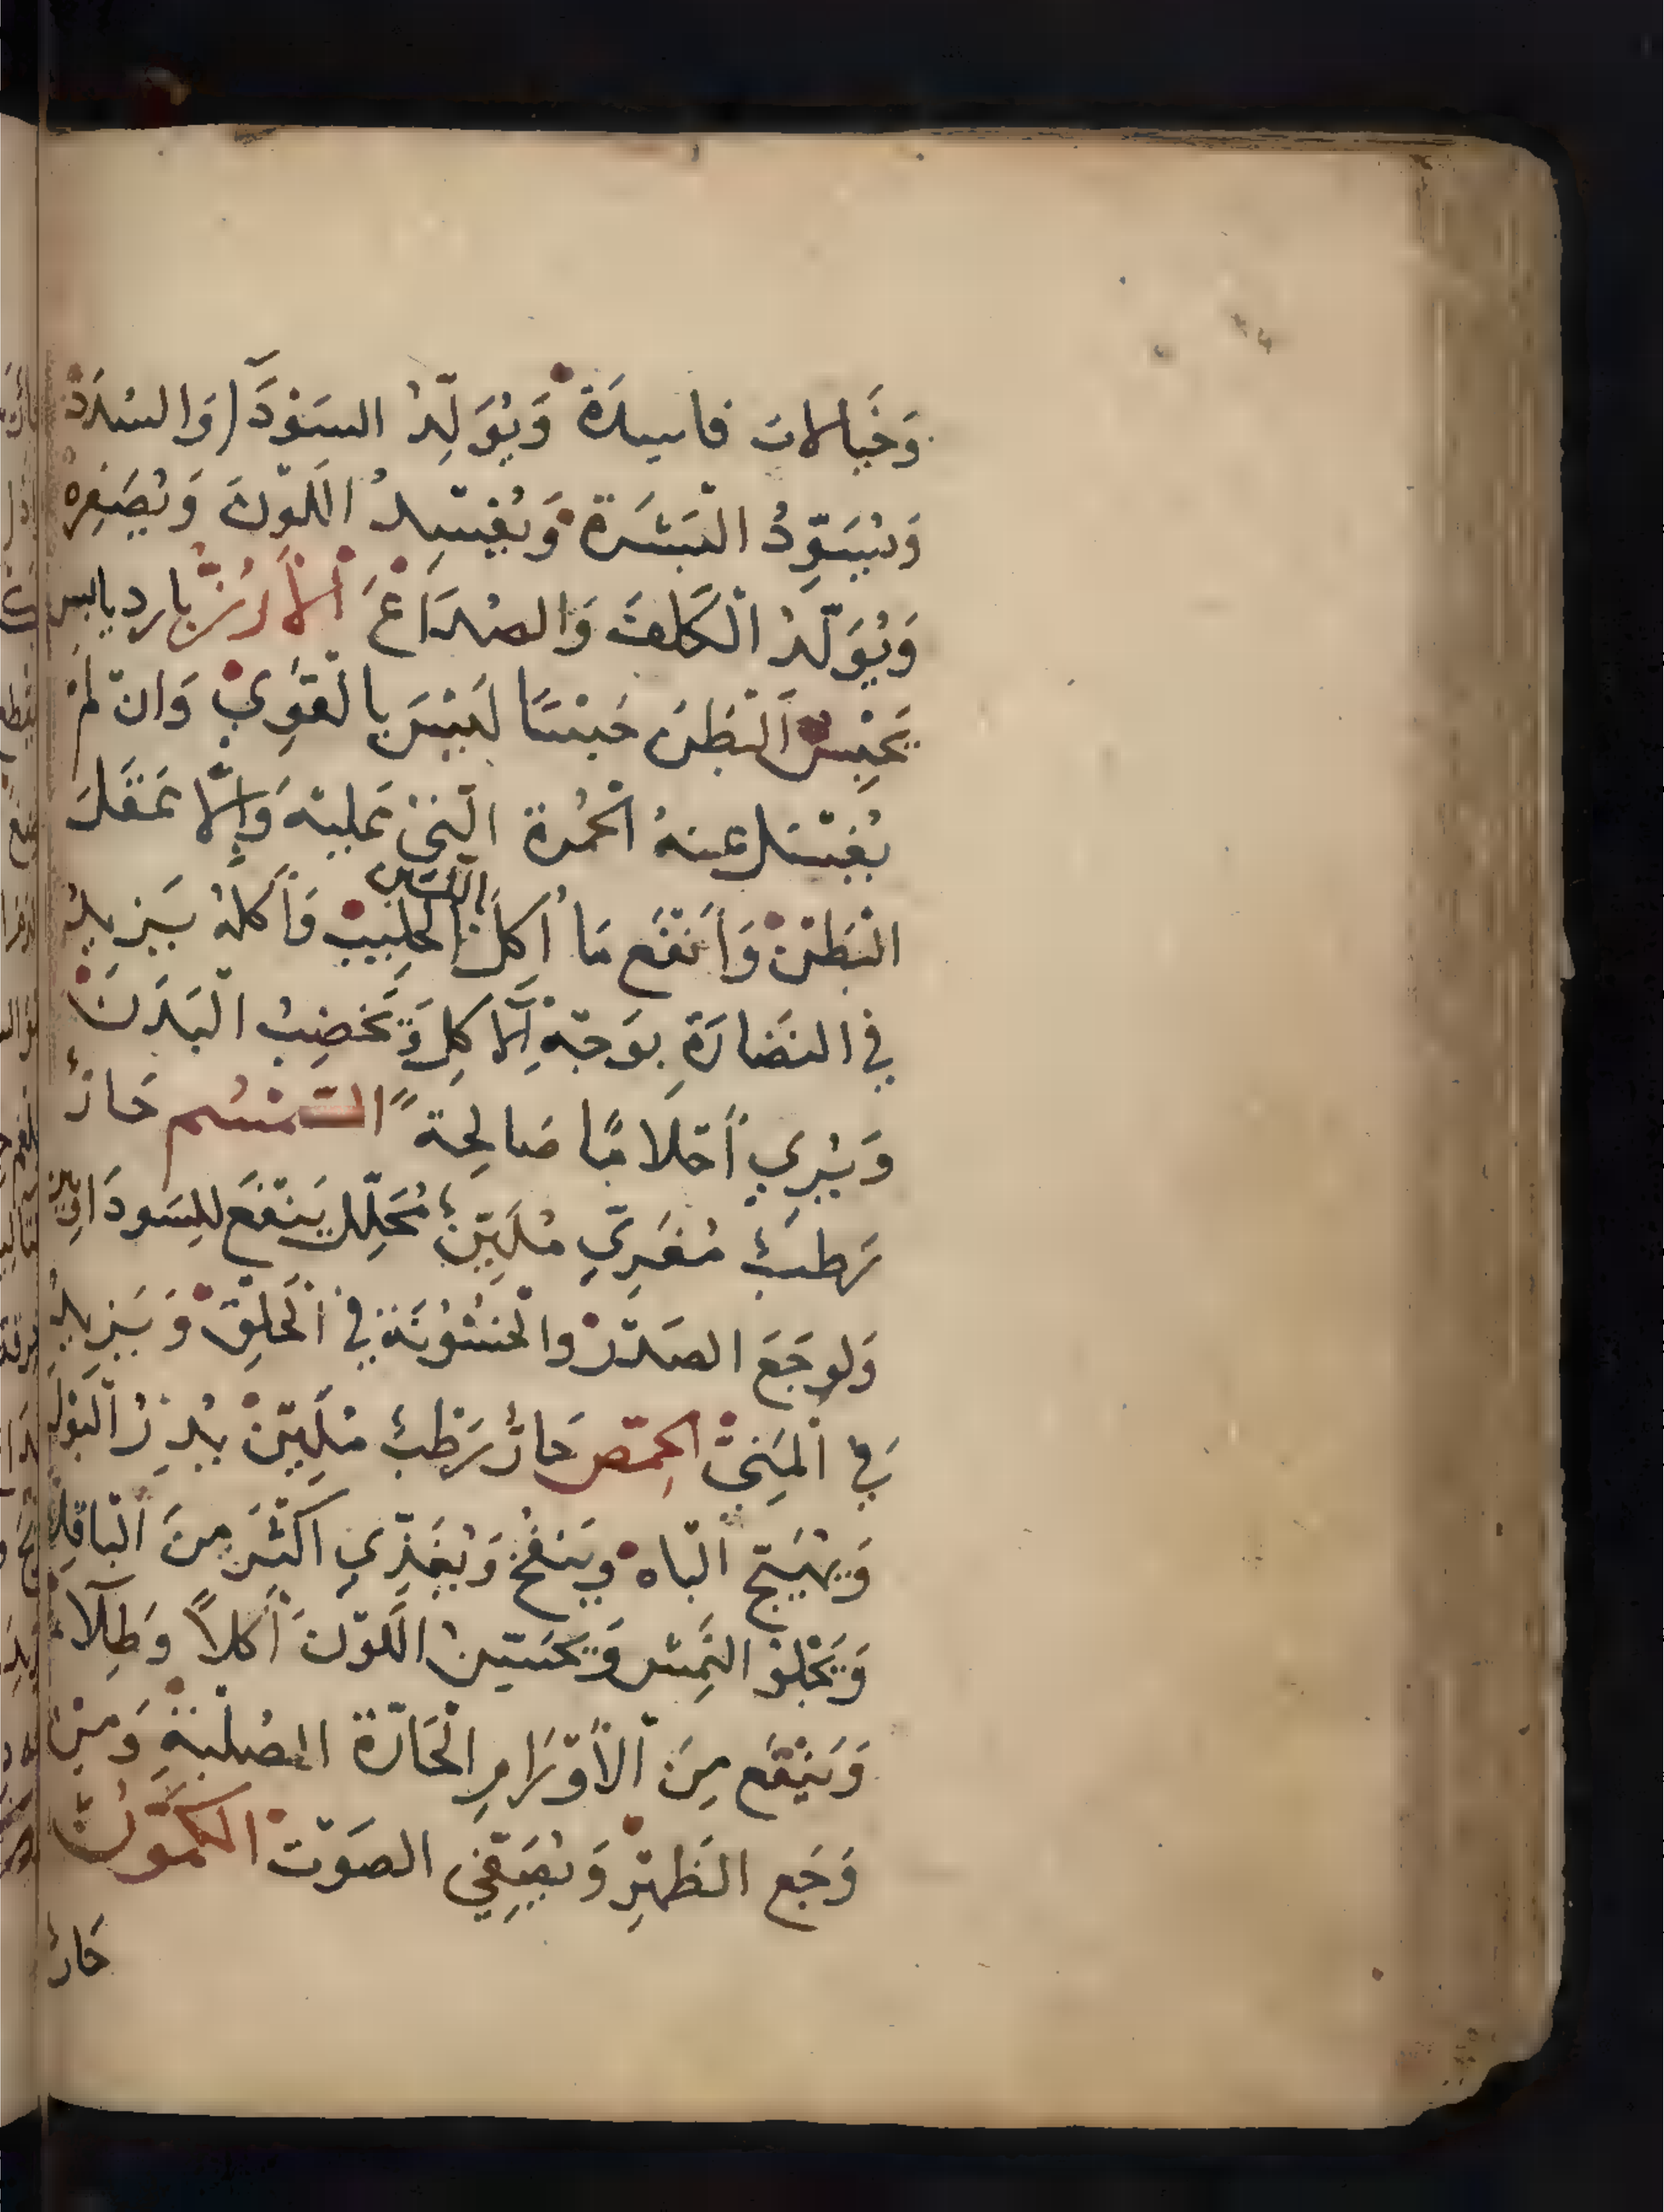 وَخَيالات فاسِدَةْ وَيُوَلِّدُ السَوْدَآ وَالسُدَدْ
وَيُسَوِّدُ الْبَشَرَةْ وَيُفْسِدُ اللَّوْنَ وَيُصَفِرهْ
وَيُوَلّدُ الْكَلفَ وَالصُدَاعْ الْأَرُزُّ بارد يابس
يَحْبِسُ الْبَطْنَ حَبْسًا لَيْسَ بِالْقَوِيْ وَان لَمْ
يُغْسَل عنهُ الْحُمْرة الّتِيْ عَليْهِ وَإِلَّا عَقَلَ
الْبَطْنْ وَأَنفَع مَا أُكِلَ بالْلبَن الحَلِيبْ فَأَكلهُ يَزِيدُ
في النَضَارَةِ بوَجْهِ الْآكِلِ وَيَخصِبُ الْبَدَنَ
وَيُرِي أَحْلامًا صَالِحَة السّمْسُم حَارٌ
رَطبٌ مُغَرِيّ مُلَيّنٌ مُحَلِّل يَنْفَع لِلسَودَاويين
وَلوَجَعَ الصَدْرْ والْخشُوُنَة في الْحَلِقْ وَيَزِيدُ
فِي الْمَنِيْ الحِمّص حَارٌ رَطْبٌ مُلَيّنْ يُدِرُ الْبَوْل
وَيهَيّج الْباه وَيَنفُخْ وَيُغَذِّي اكْثَر مِنَ الْباقِلا
وَيَجْلُو النَمِش وَيحَسّنُ اللَّوْنَ أَكلاً وَطِلآ
وَيَنْفَع مِنَ الْأَوْرَامِ الْحَارّة الصُلْبَةِ وَمِنْ
وَجَع الظَهرْ وَيُصَفّي الصَوْت الكَمّوُن
حَارٌ